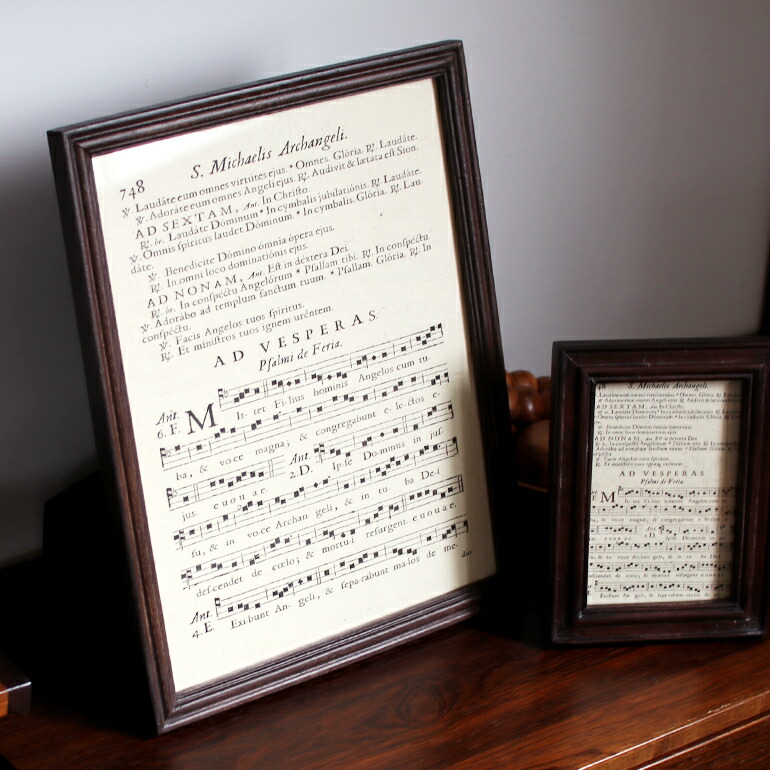 748 S. Michaelis Archangeli.
℣. Laudáte eum omnes virtutes ejus. * Omnes. Glória. ℟. Laudáte.
℣. Adoráte eum omnes Angeli ejus. ℟. Audivit & lætata est Sion.
AD SEXTAM, Ant. In Christo.
℟. br. Laudáte Dóminum * In cymbalis jubilatiónis. ℟. Laudáte.
℣. Omnis spiritus laudet Dóminum. * In cymbalis. Glória. ℟. Lau-
dáte.
℣. Benedícite Dómino ómnia ópera ejus.
℟. In omni loco dominatiónis ejus.
AD NONAM, Ant. Est in déxtera Dei.
℟. br. In conspéctu Angelórum * Psallam tibi. ℟. In conspéctu.
℣. Adorábo ad templum sanctum tuum. * Psallam. Glória. ℟. In
conspéctu.
℣. Facis Angelos tuos spíritus.
℟. Et ministros tuos ignem uréntem.
AD VESPERAS
Psalmi de Feria.
Ant.
6. F. MIt-tet Fi-lius hominis Angelos cum tu-
ba, & voce magna, & congregabunt e-lectos e-
jus. euouae. Ant. 2. D. Ipse Do-minus in jus-
su, & in voce Archan geli, & in tu- ba De-i
descendet de cœlo, & mortui resurgent. euouae.
Ant.
4. E. Exibunt An- geli, & sepa-rabunt malos de me-
dio
S. Michaelis Archangeli.
AD SEXTAM, Ant. In Christo.
AD NONAM, Ant. Est in déxtera Dei.
AD VESPERAS
Psalmi de Feria.